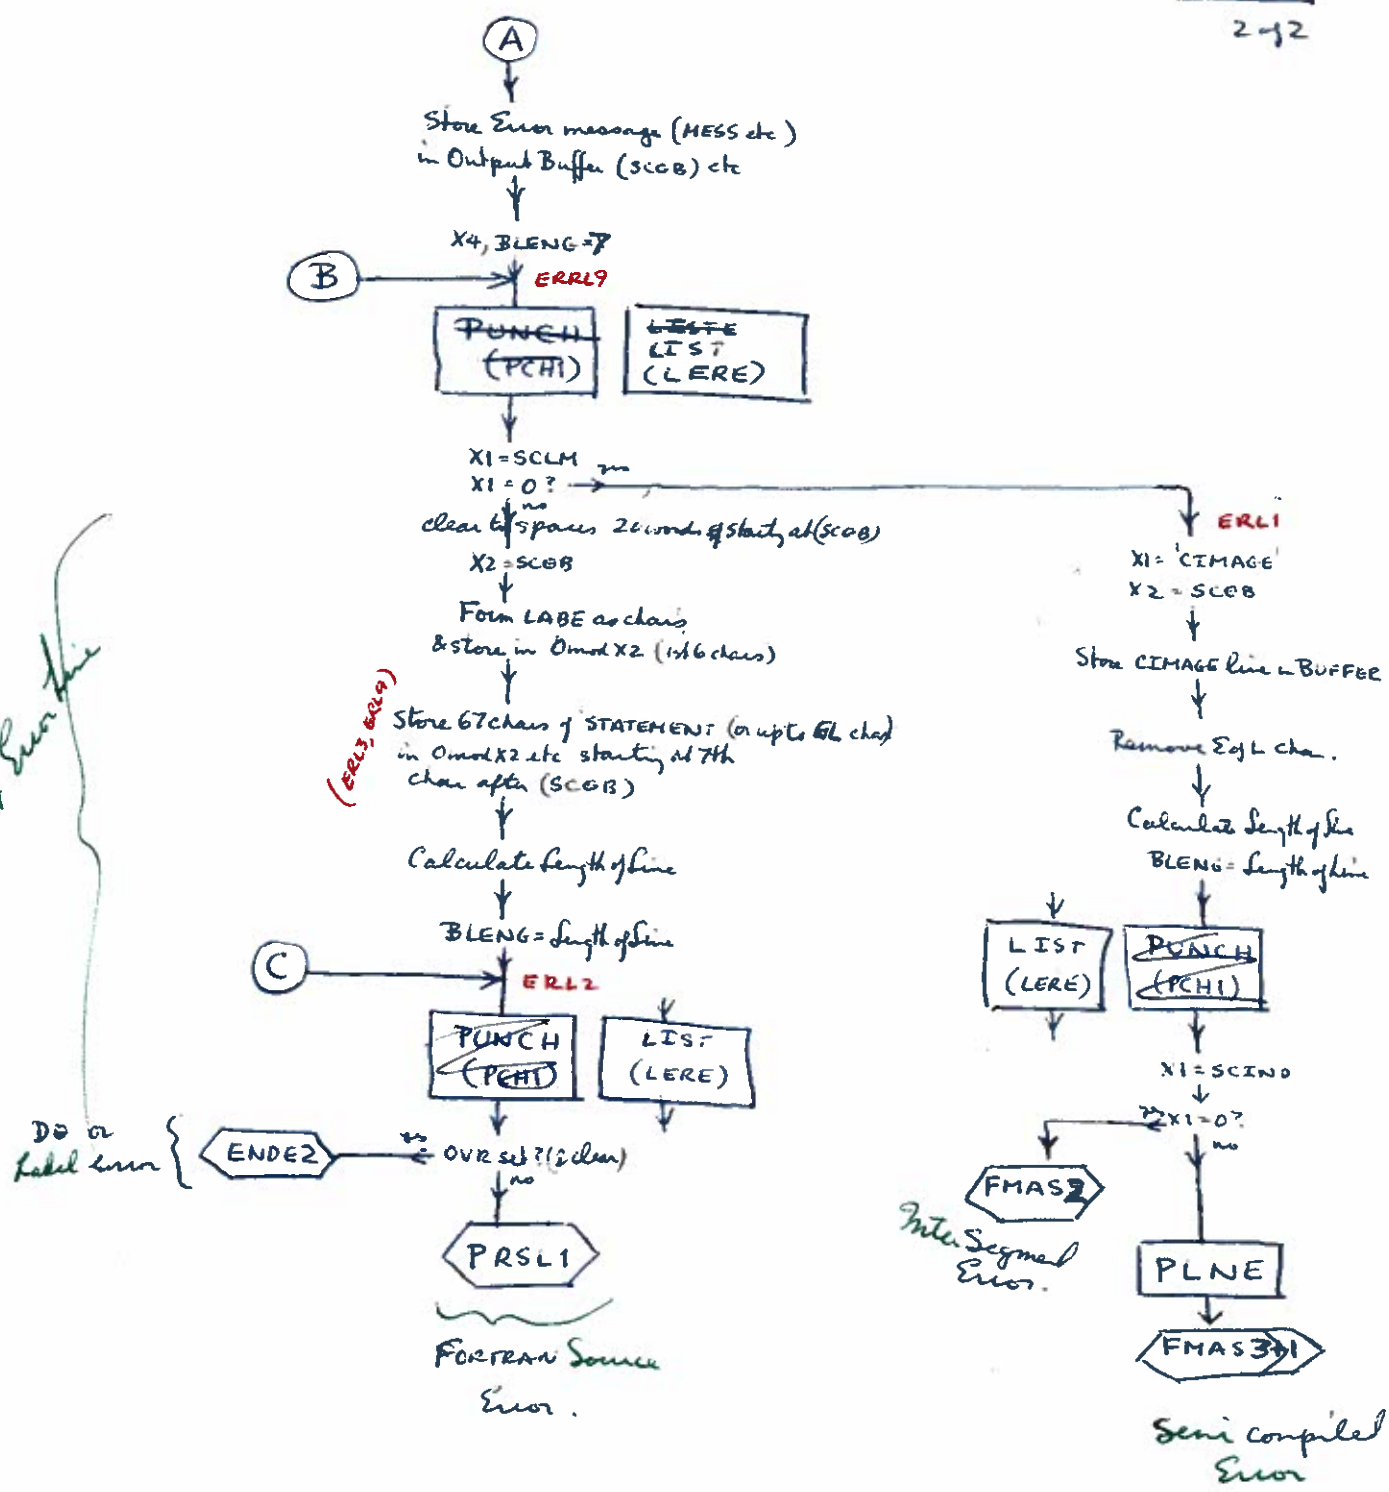 2 of 2
A
Store Error message (MESS etc)
in Output Buffer (SCOB) etc
X4, BLENG=7
B
ERRL9
PUNCH
(PCH1)
LISTE
LIST
(LERE)
X1 = SCLM
X1 = 0? yes
no
clear to spaces 20 words starting at (SCOB)
X2 = SCOB
Form LABE as chars
& store in 0mod X2 (1st 6 chars)
(ERL3, ERL9)
Store 67 chars of STATEMENT (or up to EL char)
in 0mod X2 etc starting at 7th
char after (SCOB)
Calculate Length of Line
BLENG = Length of Line
C
ERL2
PUNCH
(PCH1)
LIST
(LERE)
OVR set? (& clear)
yes
no
ENDE2
DO or
Label error
PRSL1
FORTRAN Source
Error.
Error Line
ERL1
X1 = 'CIMAGE'
X2 = SCOB
Store CIMAGE line in BUFFER
Remove E of L char.
Calculate Length of Line
BLENG = Length of Line
LIST
(LERE)
PUNCH
(PCH1)
X1 = SCIND
yes X1 = 0?
no
FMAS2
Inter Segment
Error.
PLNE
FMAS3+1
Semi compiled
Error